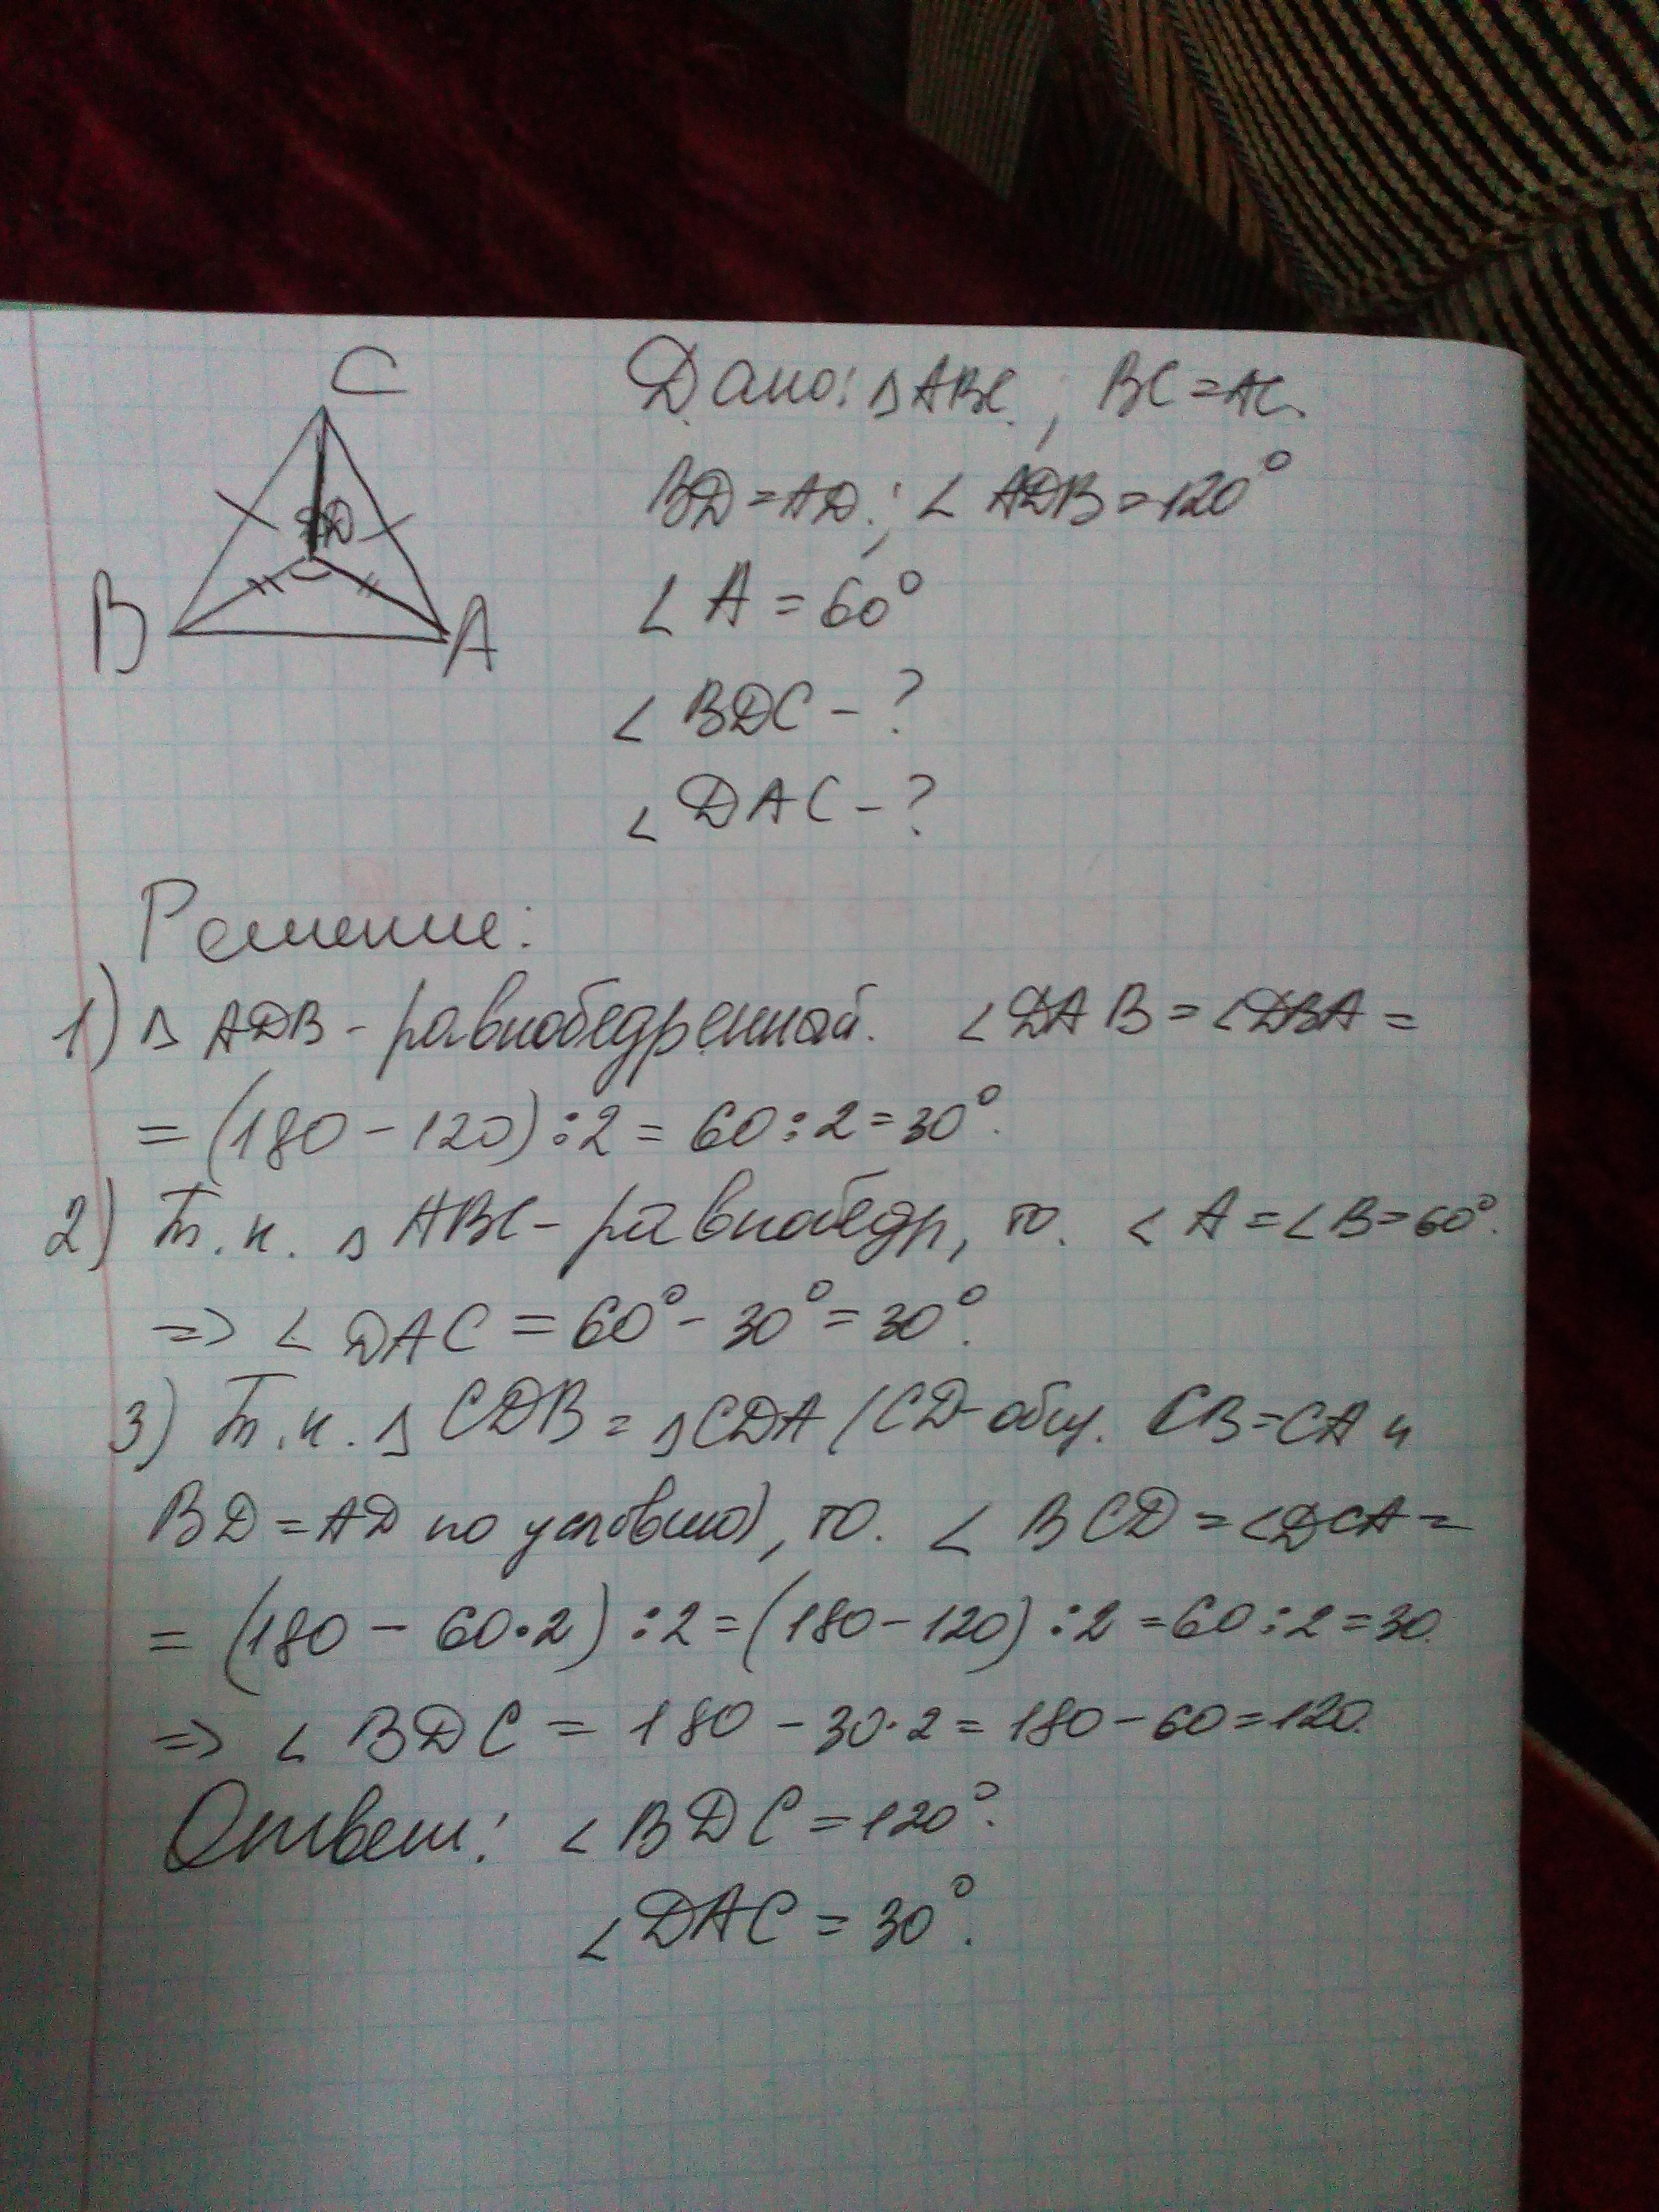 C
D
B
A
Дано: △ABC, BC = AC.
BD = AD; ∠ADB = 120°
∠A = 60°
∠BDC - ?
∠DAC - ?
Решение:
1) △ADB - равнобедренный. ∠DAB = ∠DBA =
= (180 - 120) : 2 = 60 : 2 = 30°.
2) Т.к. △ABC - равнобедр, то. ∠A = ∠B = 60°.
=> ∠DAC = 60° - 30° = 30°.
3) Т.к. △CDB = △CDA (CD - общ. CB = CA и
BD = AD по условию), то. ∠BCD = ∠DCA =
= (180 - 60·2) : 2 = (180 - 120) : 2 = 60 : 2 = 30.
=> ∠BDC = 180 - 30·2 = 180 - 60 = 120.
Ответ: ∠BDC = 120°.
∠DAC = 30°.